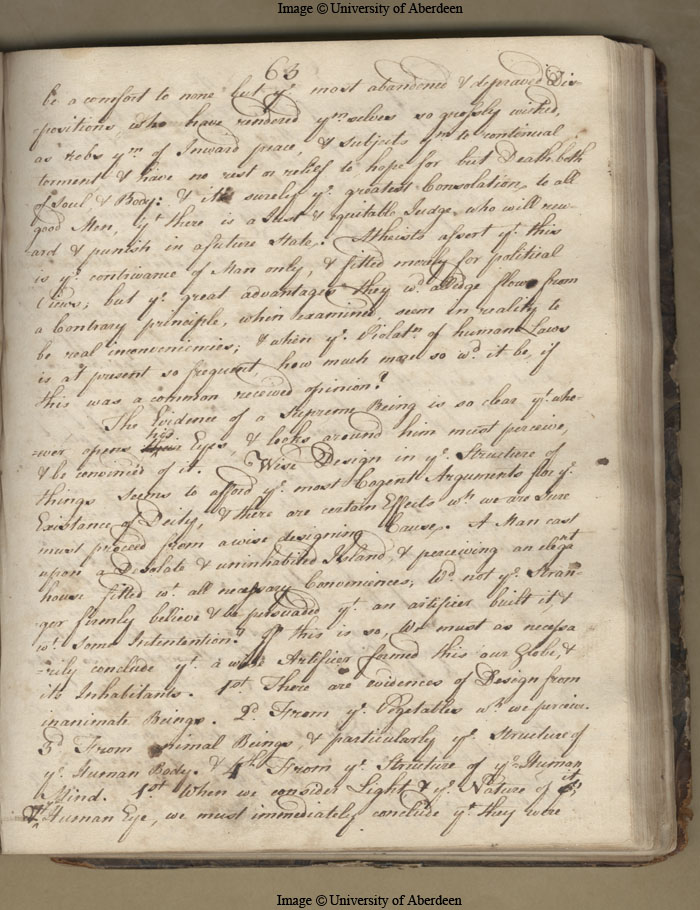 Image © University of Aberdeen
63
be a comfort to none but yᵉ most abandoned & depraved Dis-
positions, who have rendered ymselves so grossly wicked,
as robs ym of Inward peace, & subjects ym to continual
torment & have no rest or relief to hope for but Death both
of Soul & Body: & it is surely yᵉ greatest Consolation, to all
good Men, yᵗ there is a Just & equitable Judge who will rew-
ard & punish in a future State. Atheists assert yᵗ this
is yᵉ contrivance of Man only, & fitted merely for political
Views; but yᵉ great advantages they wᵈ alledge flow from
a Contrary principle, when examined, seem in reality to
be real inconveniencies; & when yᵉ Violatⁿ of human Laws
is at present so frequent, how much more so wᵈ it be, if
this was a common received opinion?
The Evidence of a Supreme Being is so clear yᵗ who-
ever opens his Eyes, & looks around him must perceive,
& be convinced of it. Wise Design in yᵉ Structure of
things seems to afford yᵉ most Cogent Arguments for yᵉ
Existance of Deity, & there are certain Effects wʰ we are sure
must proceed from a wise designing Cause. A Man cast
upon a Desolate & uninhabited Island, & perceiving an elegant
house fitted wᵗ all necessary Conveniences, Wᵈ not yᵉ Stran-
ger firmly believe & be persuaded yᵗ an artificer built it, &
wᵗ Some Intentention? If this is so, We must as necessa
-rily conclude yᵗ a wise Artificer formed this our Globe, &
its Inhabitants. 1st There are evidences of Design from
inanimate Beings. 2d From yᵉ Vegetables wʰ we perceive.
3d From animal Beings, & particularly yᵉ Structure of
yᵉ Human Body. & 4th From yᵉ Structure of yᵉ Human
Mind. 1st When we consider Light & yᵉ Nature of it,
& Human Eye, we must immediately conclude yᵗ they were
Image © University of Aberdeen